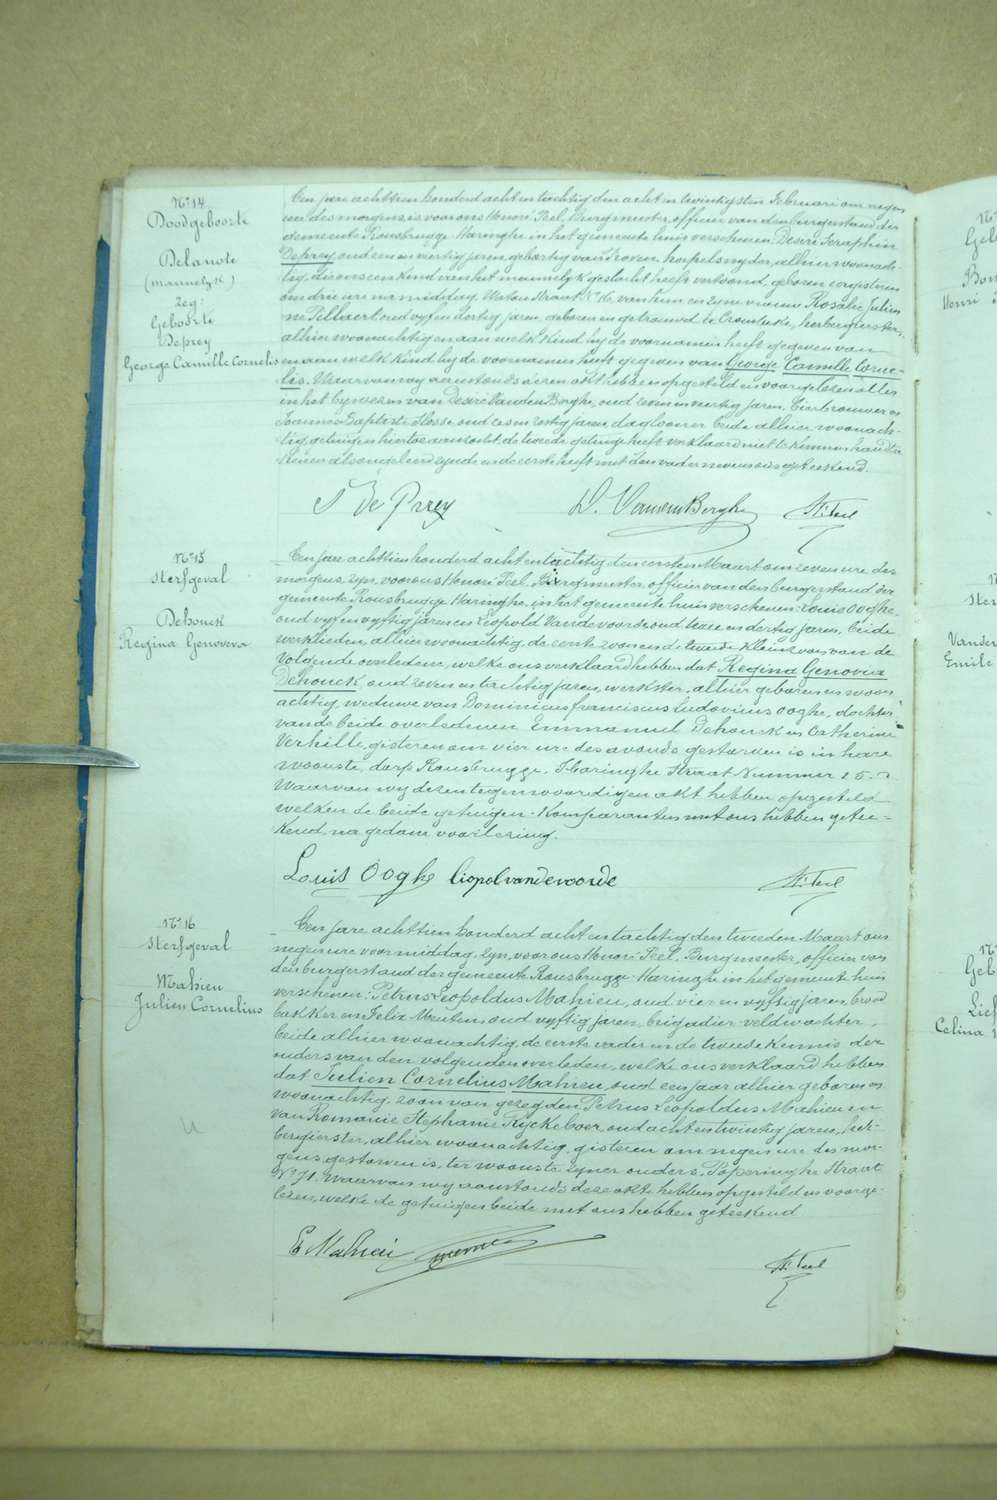 N° 14
Doodgeboorte
Delanote
(mannelyk)
zeg:
Geboorte
Deprey
George Camille Cornelis
Een jare achttien honderd acht en tachtig den acht en twintigsten Februari om negen
ure des morgens, is voor ons Henri Peel, Burgmeester, officier van den burgerstand der
gemeente Rousbrugge Haringhe in het gemeente huis verschenen Desiré Seraphin
Deprey oud een en veertig jaren, geboortig van Proven, hopelsnyder, alhier woonach-
tig, die ons een kind van het mannelyk geslacht heeft vertoond, geboren eergisteren
om drie ure namiddag, Watou Straat N° 16, van hem en zyne vrouw Rosalie Julien
ne Pillaert oud vyf en dertig jaren, geboren en getrouwd te Crombeke, herbergierster,
alhier woonachtig en aan welk kind hy de voornamen heeft gegeven van
en aan welk kind hy de voornamen heeft gegeven van George Camille Corne-
lis. Waarvan wy aanstonds dezen akt hebben opgesteld en voorgelezen alles
in het bywezen van Desiré Vanden Berghe, oud zeven en veertig jaren, bierbrouwer en
Joannes Baptiste Flosse, oud zes en zestig jaren, daglooner beide alhier woonach-
tig, getuigen hiertoe aanzocht, de tweede getuige heeft verklaard niet te kunnen handtee
kenen als ongeleerd zynde en de eerste heeft met den vader nevens ons geteekend.
D. Vanden Berghe
H. Peel
N° 15
Sterfgeval
Dehouck
Regina Genoveva
Een jare achttien honderd acht en tachtig den eersten Maart om zeven ure des
morgens, zyn, voor ons Henri Peel, Burgmeester, officier van den burgerstand der
gemeente Rousbrugge Haringhe, in het gemeente huis verschenen: Louis Ooghe,
oud vyf en vyftig jaren en Leopold Vandevoorde, oud twee en dertig jaren, beide
werklieden, alhier woonachtig, de eerste zoon en de tweede kleinzoon van de
volgende overledene, welke ons verklaard hebben dat Regina Genoveva
Dehouck, oud zeven en tachtig jaren, werkster, alhier geboren en woon
achtig, weduwe van Dominicus Franciscus Ludovicus Ooghe, dochter
van de beide overledenen Emmanuel Dehouck en Catherine
Verhille, gisteren om vier ure des avonds gestorven is in hare
woonste, dorp Rousbrugge, Haringhe Straat Nummer 25.
Waarvan wy dezen tegenwoordigen akt hebben opgesteld
welken de beide getuigen-komparanten met ons hebben getee-
kend, na gedane voorlezing.
Louis Ooghe Liopol vandevoorde
H. Peel
N° 16
Sterfgeval
Mahieu
Julien Cornelius
Een jare achttien honderd acht en tachtig den tweeden Maart om
negen ure voormiddag, zyn, voor ons Henri Peel, Burgmeester, officier van
den burgerstand der gemeente Rousbrugge-Haringhe in het gemeente huis
verschenen: Petrus Leopoldus Mahieu, oud vier en vyftig jaren, brood
bakker en Felix Meuten, oud vyftig jaren, brigadier-veldwachter,
beide alhier woonachtig, de eerste vader en de tweede kennis der
ouders van den volgenden overleden, welke ons verklaard hebben
dat Julien Cornelius Mahieu, oud een jaar alhier geboren en
woonachtig, zoon van gezegden Petrus Leopoldus Mahieu en
van Romanie Stephanie Ryckeboer, oud acht en twintig jaren, her-
bergierster, alhier woonachtig, gisteren om negen ure des mor-
gens gestorven is, ter woonste zyner ouders, Poperinghe Straat
N° 71. Waarvan wy aanstonds deze akte hebben opgesteld en voorge-
lezen, welke de getuigen beide met ons hebben geteekend
Mahieu
H. Peel